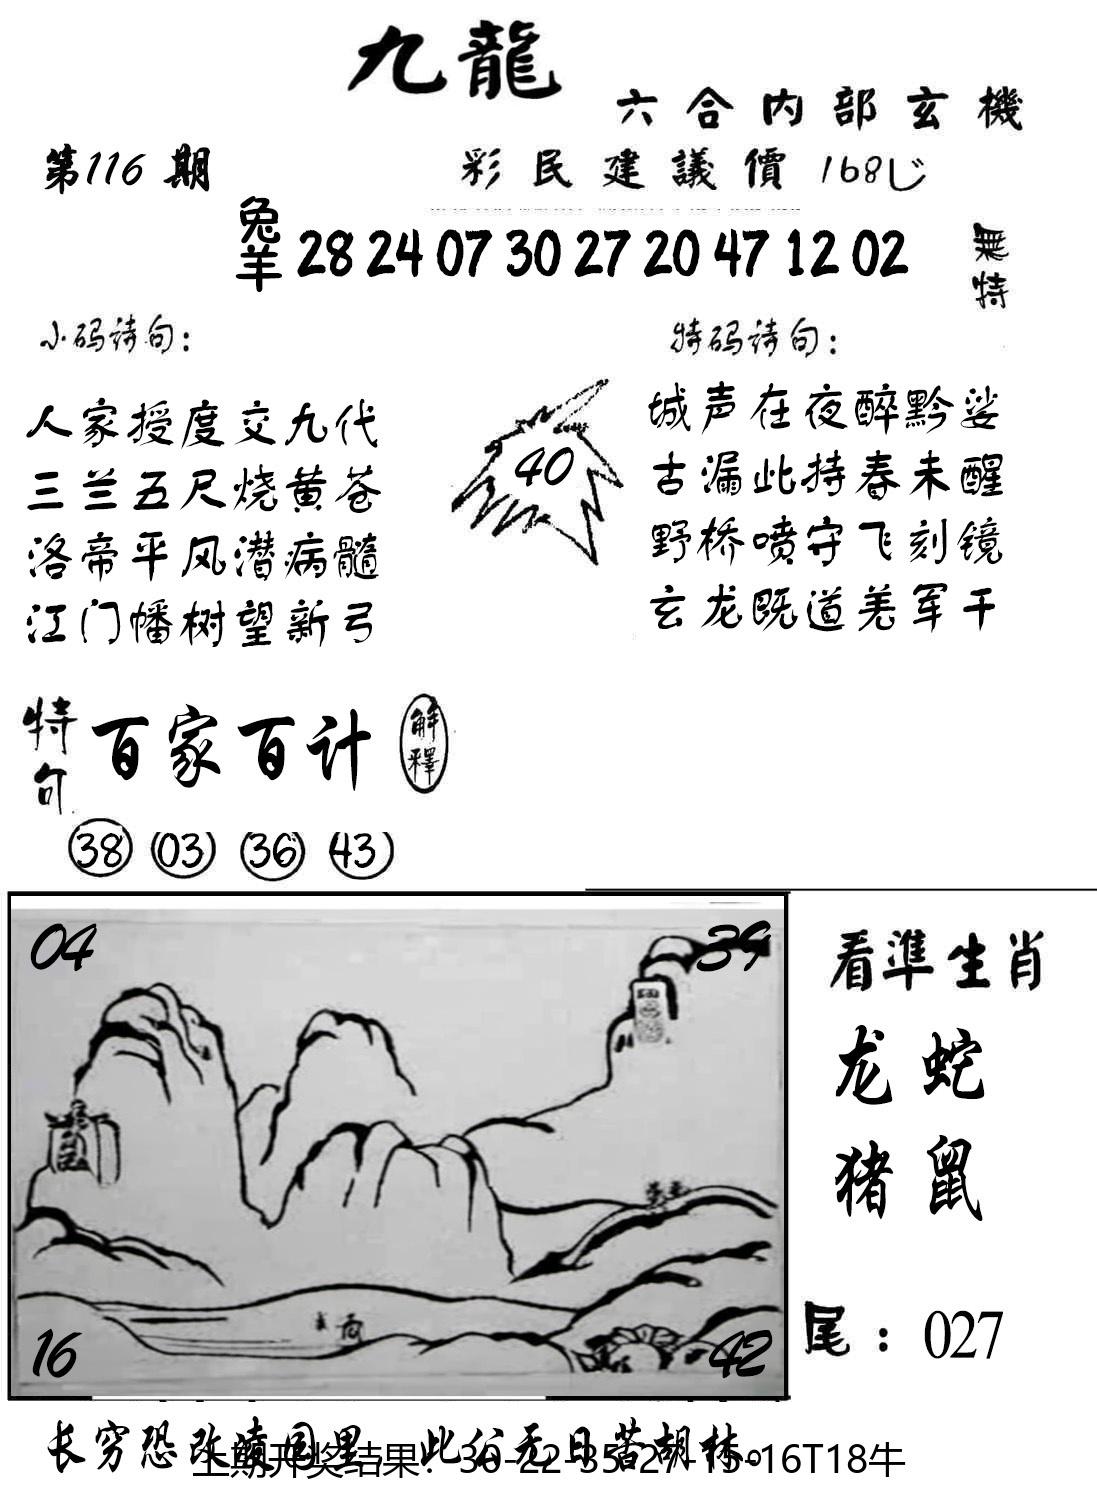 九龍
六合内部玄機
第116期
彩民建議價168
兔羊 28 24 07 30 27 20 47 12 02
無特
小码诗句：
人家授度交九代
三兰五尺烧黄苍
洛帝平风潜病髓
江门幡树望新弓
40
特码诗句：
城声在夜醉黔娑
古漏此持春未醒
野桥喷守飞刻镜
玄龙既道羌军干
特句 百家百计 解釋
38 03 36 43
04
39
16
42
看準生肖
龙蛇
猪鼠
尾：027
长穷恐改 国里 此父无日苦胡林。
上期开奖结果：30-22-35-27-15-16T18牛